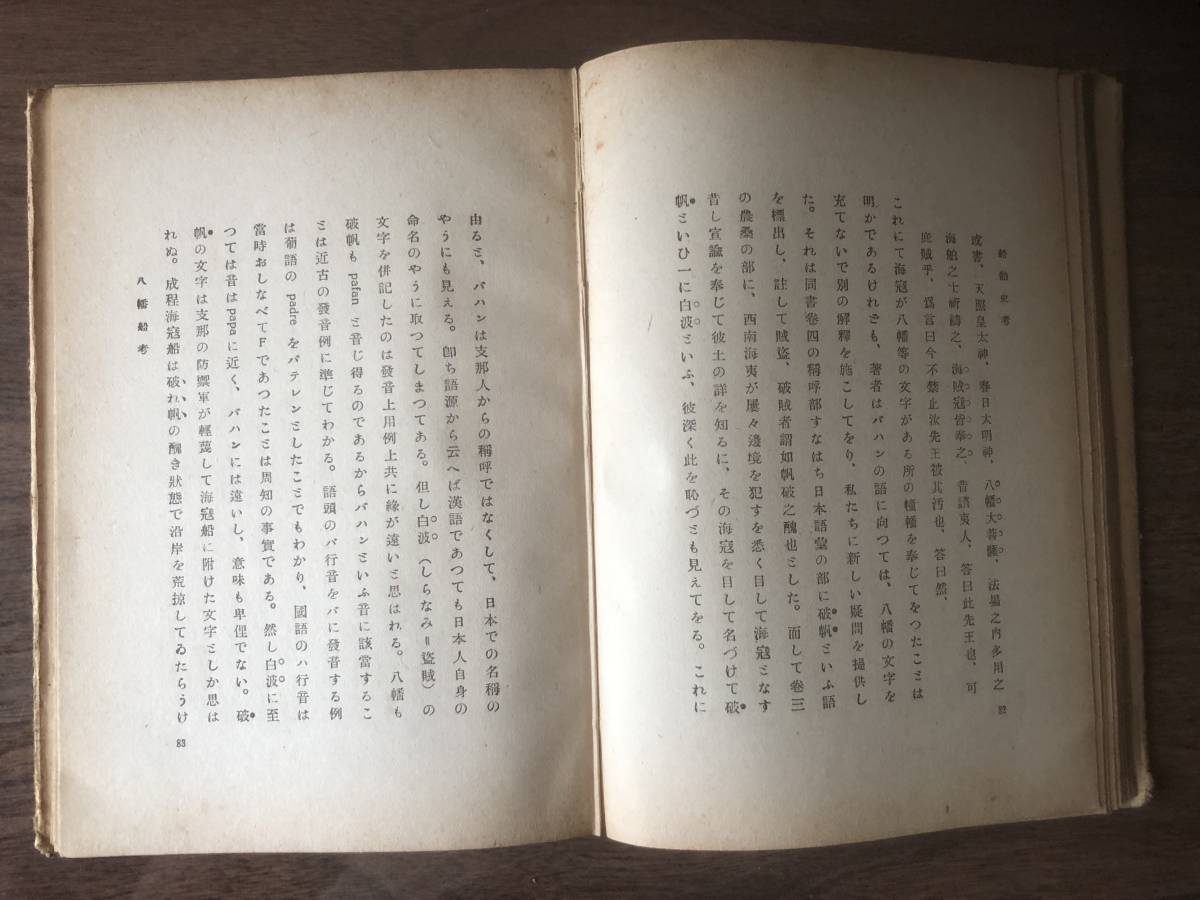 船舶史考
或書、天照皇太神、春日大明神、八幡大菩薩、法樂之内多用之
海舶之士祈禱之、海賊寇皆奉之。昔諸夷人、答曰此先王也、可
庶賊乎、爲言曰今不禁止汝先王被其汚也、答曰然、
これにて海寇が八幡等の文字がある所の幢幡を奉じてをつたことは
明かであるけれども、著者はバハンの語に向つては、八幡の文字を
充てないで別の解釋を施こしてをり、私たちに新しい疑問を提供し
た。それは同書卷四の稱呼部すなはち日本語彙の部に破帆といふ語
を標出し、註して賊盜、破賊者謂如帆破之醜也とした。而して卷三
の農桑の部に、西南海夷が屢々邊境を犯すを悉く目して海寇となす
昔し宣諭を奉じて彼土の詳を知るに、その海寇を目して名づけて破
帆といひ一に白波といふ、彼深く此を恥づとも見えてをる。これに
82
由ると、バハンは支那人からの稱呼ではなくして、日本での名稱の
やうにも見える。卽ち語源から云へば漢語であつても日本人自身の
命名のやうに取つてしまつてある。但し白波(しらなみ=盜賊)の
文字を併記したのは發音上用例上共に緣が遠いと思はれる。八幡も
破帆も pafan と音じ得るのであるからバハンといふ音に該當するこ
とは近古の發音例に準じてわかる。語頭のバ行音をパに發音する例
は葡語の padre をバテレンとしたことでもわかり、國語のハ行音は
當時おしなべてFであつたことは周知の事實である。然し白波に至
つては音はpapaに近く、バハンには遠いし、意味も卑俚でない。破
帆の文字は支那の防禦軍が輕蔑して海寇船に附けた文字としか思は
れぬ。成程海寇船は破れ帆の醜き狀態で沿岸を荒掠してゐたらうけ
八幡船考
83